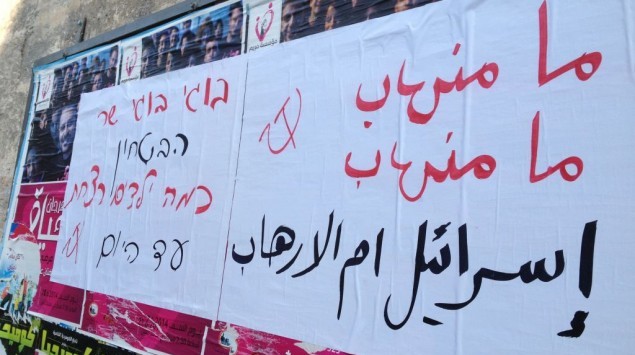 ما منهاب
ما منهاب
إسرائيل ام الارهاب
בוגי בוגי שר
הבטחון
כמה ילדים רצחת
עד היום